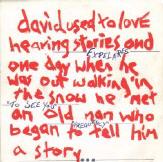 david used to love
hearing stories and
EXPELARE
one day when he
was out walking in
"TO SEE YOU"
the snow he met
an old man who
began to tell him
a story ....